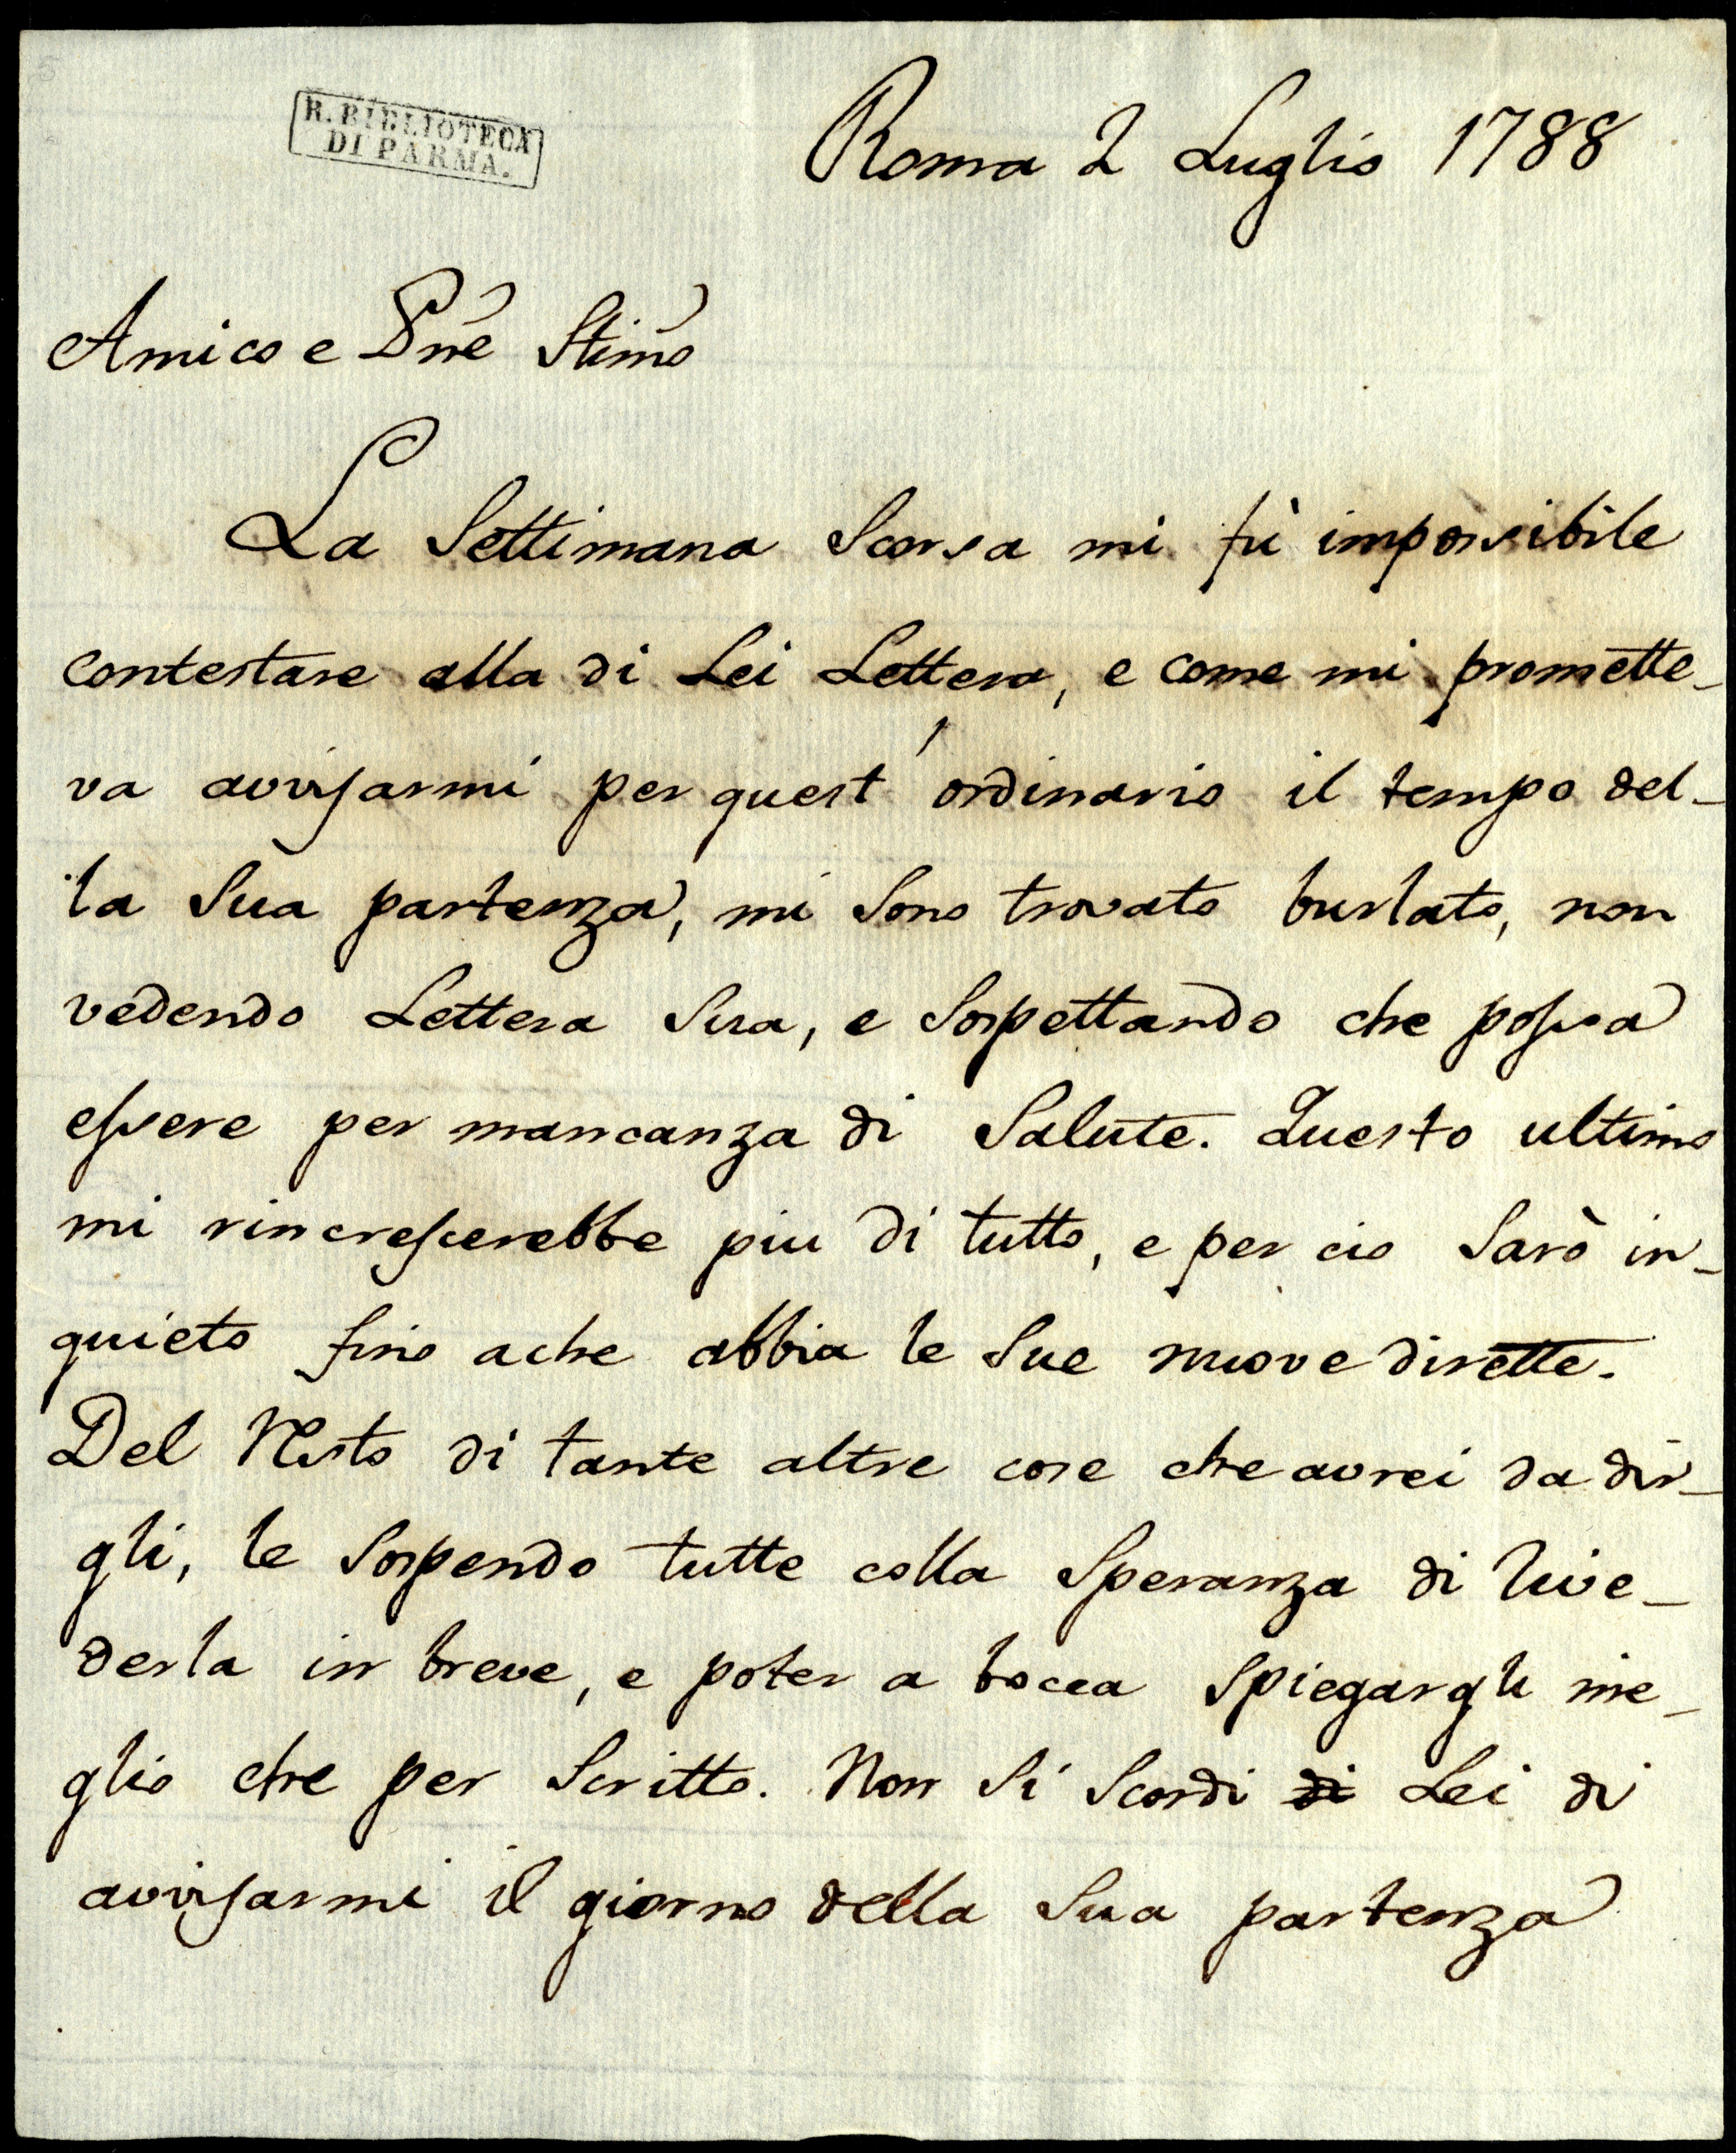 R. BIBLIOTECA
DI PARMA.
Roma 2 Luglio 1788
Amico e Pñe Stim̃o
La Settimana Scorsa mi fù impossibile
contestare alla di Lei Lettera, e come mi promette-
va avvisarmi per quest' ordinario il tempo del-
la Sua partenza, mi Sono trovato burlato, non
vedendo Lettera Sua, e Sospettando che possa
essere per mancanza di Salute. Questo ultimo
mi rincrescerebbe piu di tutto, e per cio Sarò in-
quieto fino ache abbia le Sue nuove dirette.
Del Resto di tante altre cose che avrei da dir-
gli, le Sospendo tutte colla Speranza di Rive-
derla in breve, e poter a bocca Spiegargli me-
glio che per Scritto. Non Si Scordi di Lei di
avvisarmi il giorno della Sua partenza